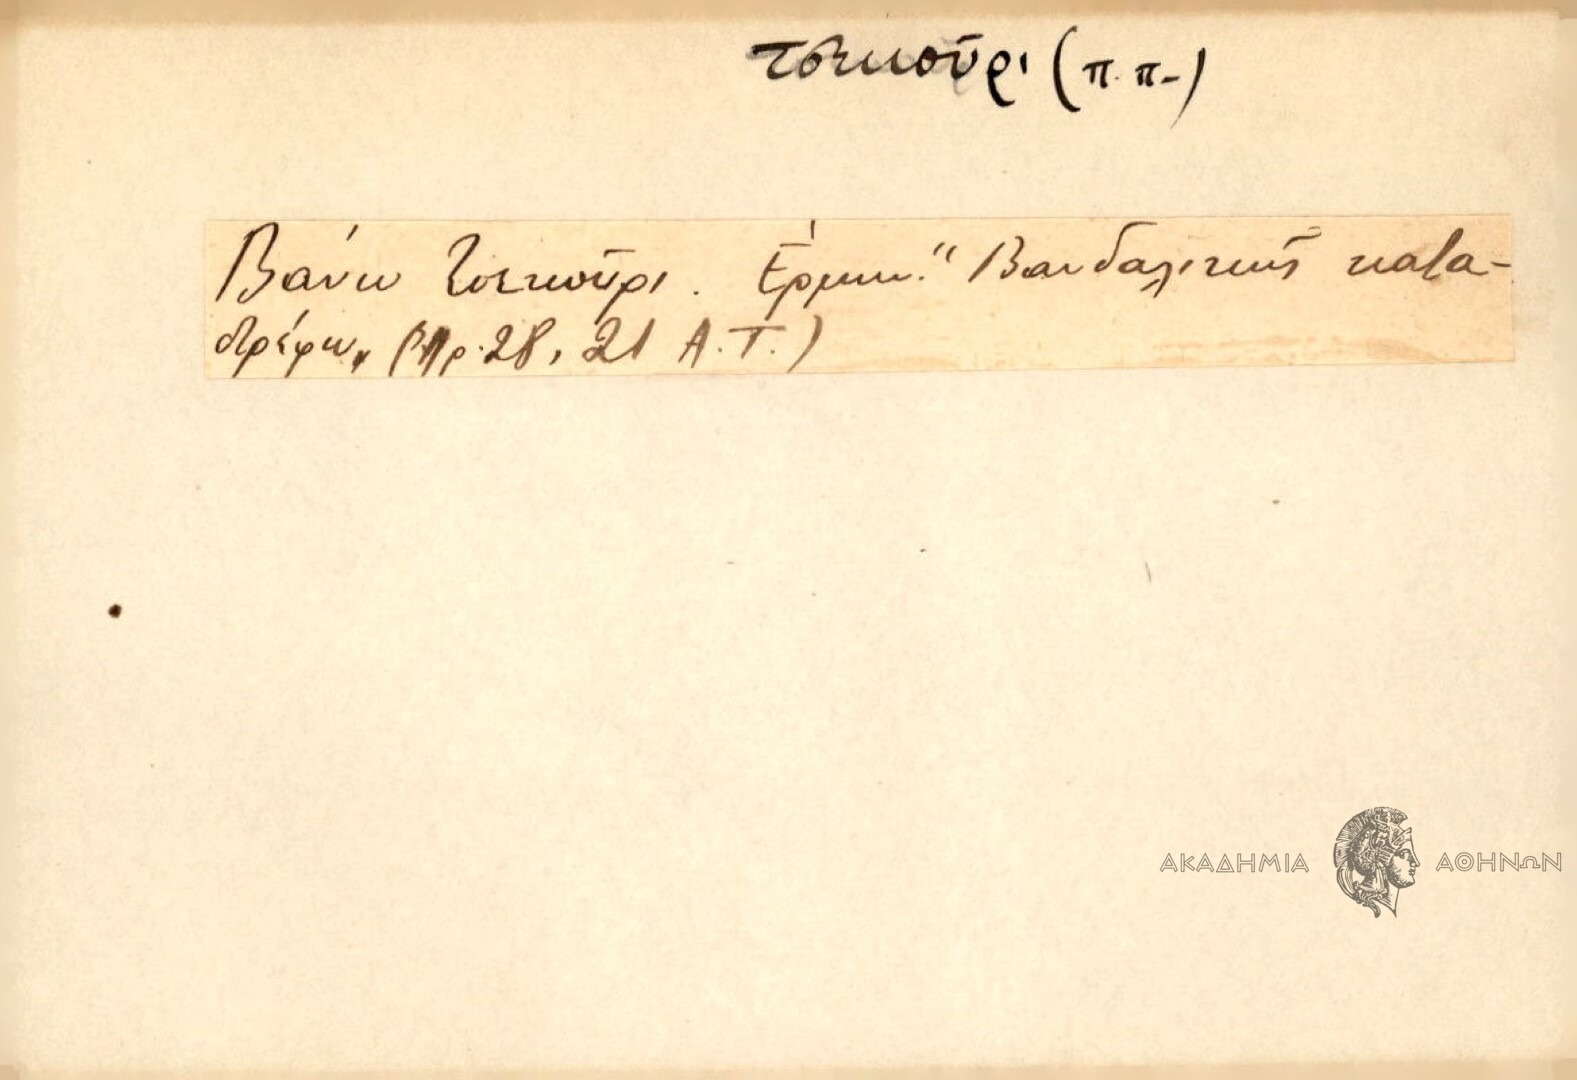 τσεκοῦρι (π.π.)
Βάνω τσεκοῦρι. Ἑρμην. "Βανδαλικῶς κατα-
στρέφω" (Πρ. 28, 21 Α.Τ.)
ΑΚΑΔΗΜΙΑ ΑΘΗΝΩΝ